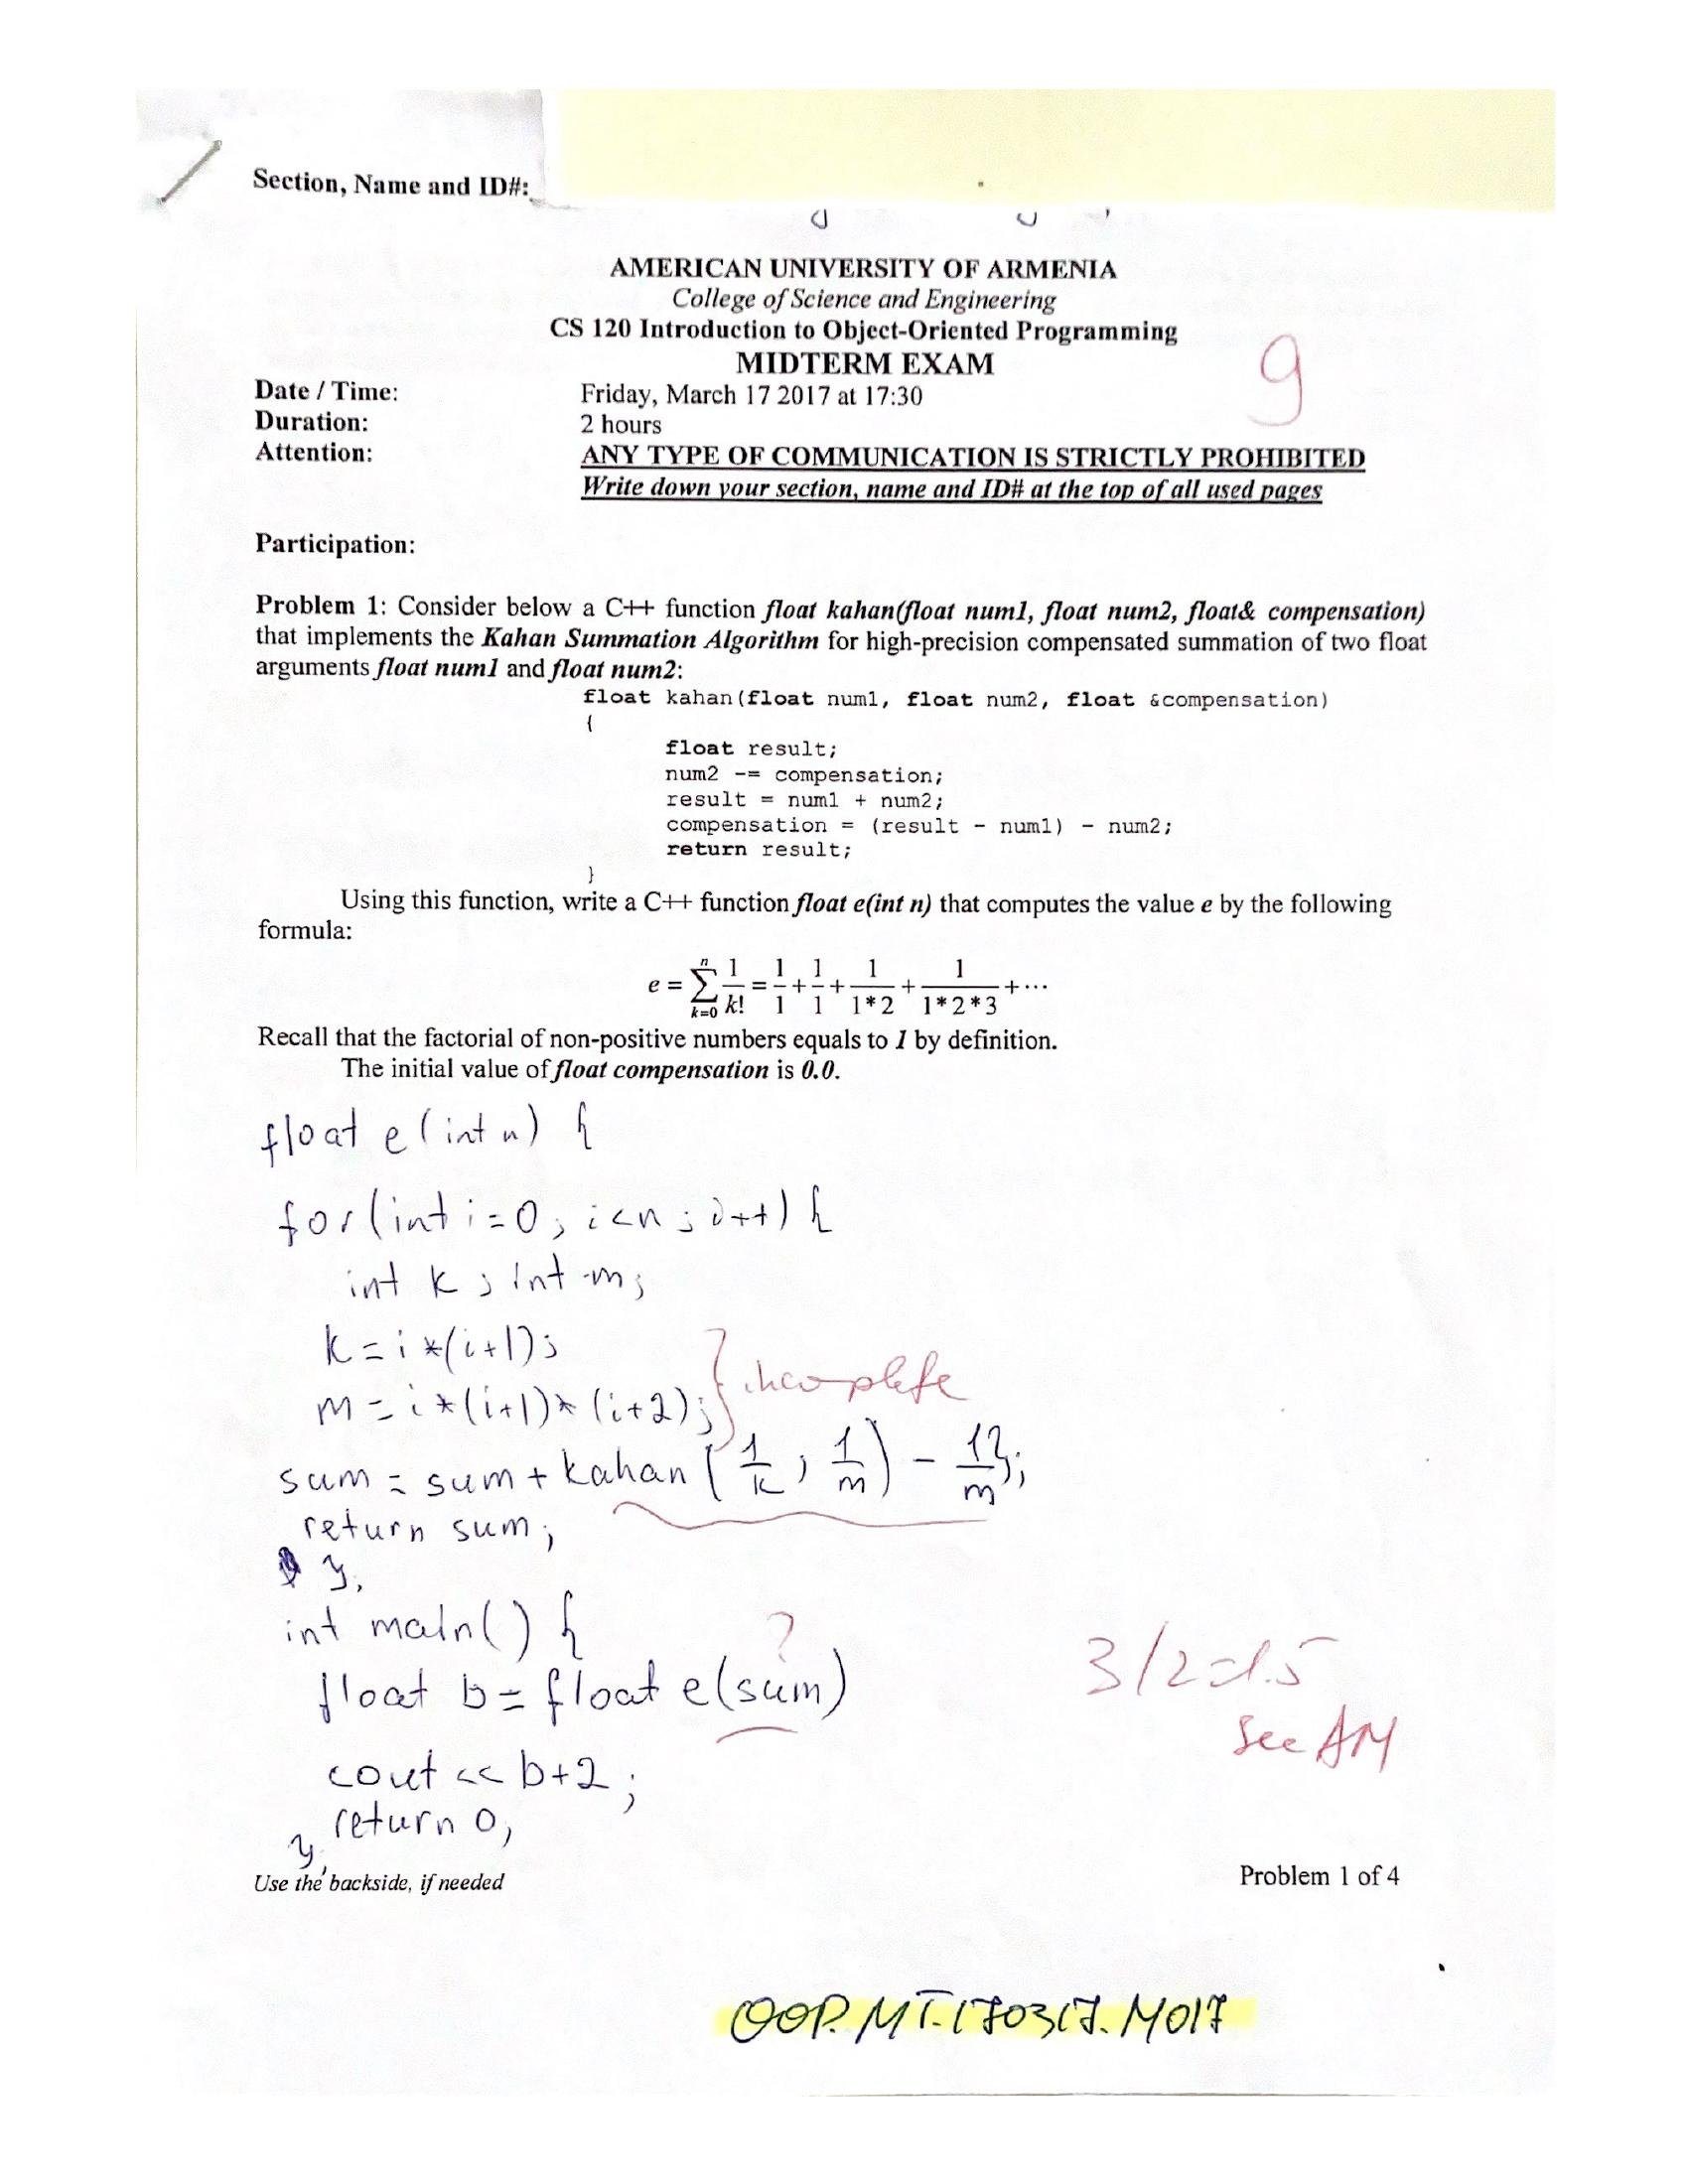 Section, Name and ID#:
AMERICAN UNIVERSITY OF ARMENIA
College of Science and Engineering
CS 120 Introduction to Object-Oriented Programming
MIDTERM EXAM
9
Date / Time: Friday, March 17 2017 at 17:30
Duration: 2 hours
Attention: ANY TYPE OF COMMUNICATION IS STRICTLY PROHIBITED
Write down your section, name and ID# at the top of all used pages
Participation:
Problem 1: Consider below a C++ function float kahan(float num1, float num2, float& compensation)
that implements the Kahan Summation Algorithm for high-precision compensated summation of two float
arguments float num1 and float num2:
float kahan(float num1, float num2, float &compensation)
{
float result;
num2 -= compensation;
result = num1 + num2;
compensation = (result - num1) - num2;
return result;
}
Using this function, write a C++ function float e(int n) that computes the value e by the following
formula:
e = ∑_{k=0}^{n} 1/k! = 1/1 + 1/1 + 1/(1*2) + 1/(1*2*3) + ⋯
Recall that the factorial of non-positive numbers equals to 1 by definition.
The initial value of float compensation is 0.0.
float e(int n) {
for(int i=0; i<n; i++) {
int k; int m;
k=i*(i+1);
m=i*(i+1)*(i+2);
incomplete
sum = sum + kahan(1/k, 1/m) - 1/m};
return sum;
};
int main() {
?
float b= float e(sum)
3/2=1.5
see AM
cout << b+2;
return 0;
};
Use the backside, if needed
Problem 1 of 4
OOP.MT.170317.M017